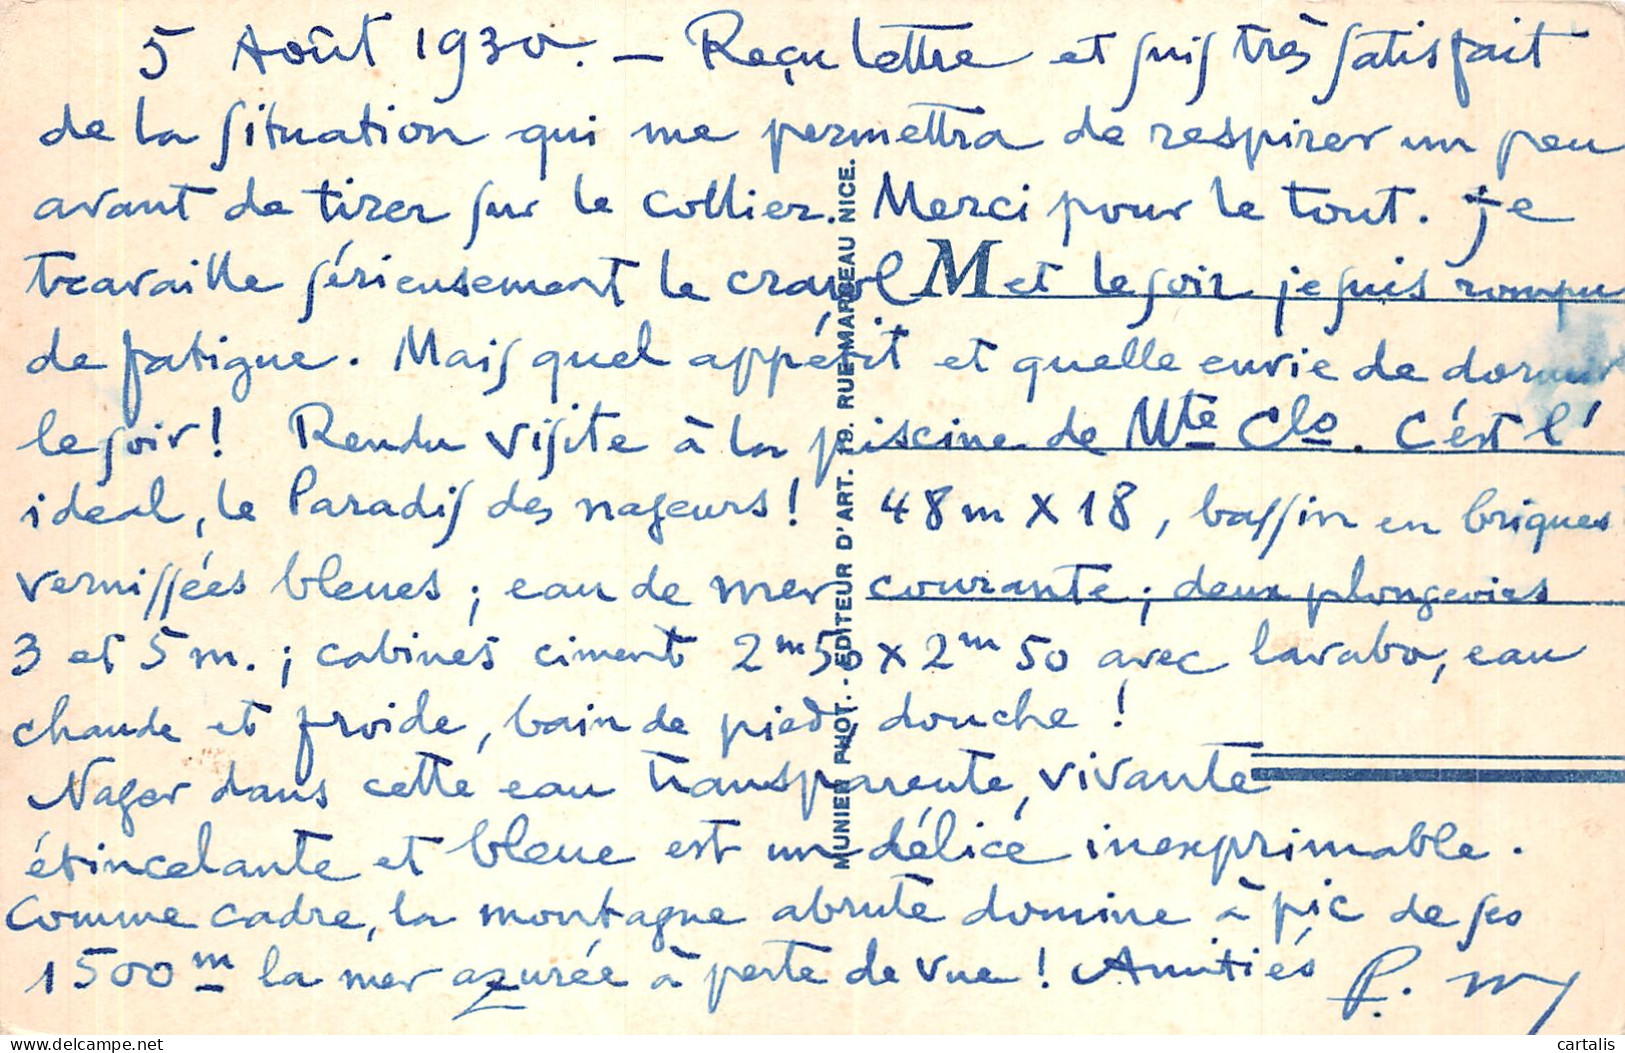 5 Août 1930. — Reçu lettre et suis très satisfait
de la situation qui me permettra de respirer un peu
avant de tirer sur le collier. Merci pour le tout. Je
travaille sérieusement le crawl et le soir je suis rompu
M
de fatigue. Mais quel appétit et quelle envie de dormir
le soir! Rendu visite à la piscine de Mte Clo. C'est l'
idéal, le Paradis des nageurs! 48 m X 18, bassin en briques
vernissées bleues; eau de mer courante; deux plongeoirs
3 et 5 m.; cabines ciment 2m50 x 2m50 avec lavabo, eau
chaude et froide, bain de pied, douche!
Nager dans cette eau transparente, vivante
étincelante et bleue est un délice inexprimable.
Comme cadre, la montagne abrute domine à pic de ses
1500m la mer azurée à perte de vue! Amitiés P.
MUNIER PHOT. - EDITEUR D'ART. 19. RUE MARCEAU NICE.
cartalis